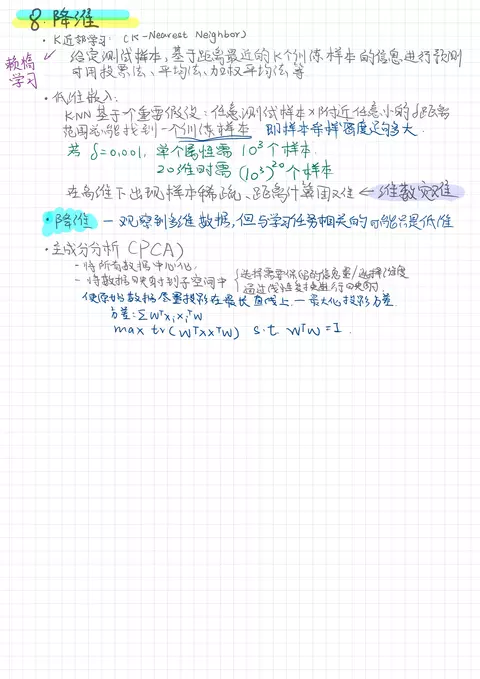 8. 降维
· K近邻学习: (K-Nearest Neighbor)
懒惰学习
✓ 给定测试样本, 基于距离最近的K个训练样本的信息进行预测
可用投票法、平均法、加权平均法等
· 低维嵌入:
KNN基于一个重要假设: 任意测试样本x附近任意小的δ距离
范围内总能找到一个训练样本 即样本采样密度足够大.
若 δ=0.001, 单个属性需 10³个样本.
20维时需 (10³)²⁰个样本
在高维下出现样本稀疏、距离计算困难 ← 维数灾难
· 降维 — 观察到高维数据, 但与学习任务相关的可能只是低维
· 主成分分析 (PCA)
- 将所有数据中心化
- 将数据映射到子空间中 { 选择需要保留的信息量/选择维度
通过线性变换进行映射
使原始数据尽量投影在最长直线上 — 最大化投影方差
方差: ∑ wᵀxᵢxᵢᵀw
max tr(wᵀxxᵀw) s.t. wᵀw = I.